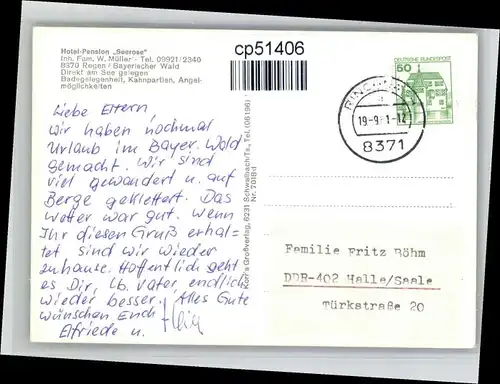 Hotel-Pension „Seerose"
Inh. Fam. W. Müller - Tel. 09921/2340
8370 Regen / Bayerischer Wald
Direkt am See gelegen
Badegelegenheit, Kahnpartien, Angel-
möglichkeiten
cp51406
DEUTSCHE BUNDESPOST
50
19-9
-12
8371
Liebe Eltern
Wir haben nochmal
Urlaub im Bayer. Wald
gemacht. Wir sind
viel gewandert u. auf
Berge geklettert. Das
Wetter war gut. Wenn
Ihr diesen Gruß erhal-
tet sind wir wieder
zuhause. Hoffentlich geht
es Dir, lb. Vater, endlich
wieder besser. Alles Gute
wünschen Euch
Elfriede u.
Korr's Großverlag, 6231 Schwalbach/Ts., Tel. (06196)
Nr. 7018d
Familie Fritz Böhm
DDR-402 Halle/Saale
Türkstraße 20